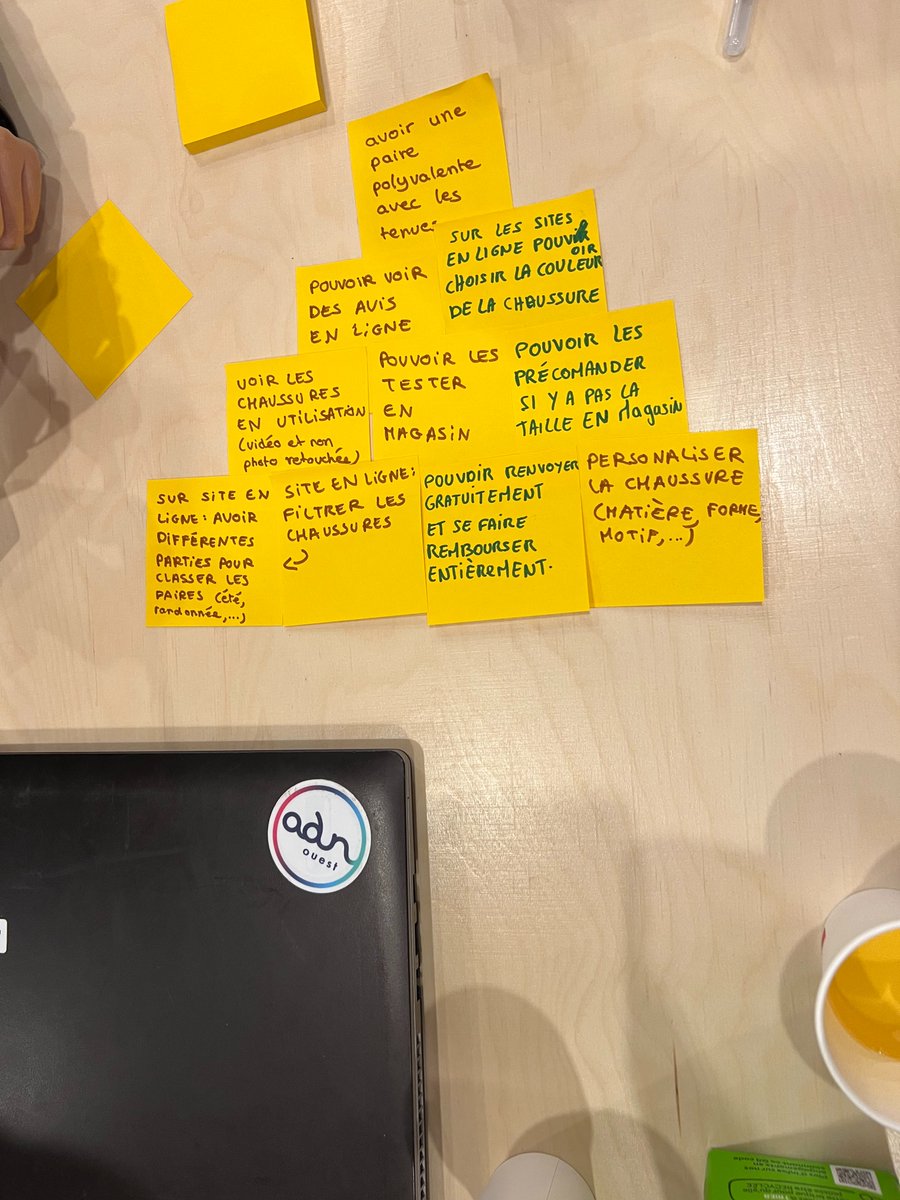 avoir une
paire
polyvalente
avec les
tenues
SUR LES SITES
EN LIGNE POUVOIR
CHOISIR LA COULEUR
DE LA CHAUSSURE
POUVOIR VOIR
DES AVIS
EN LIGNE
VOIR LES
CHAUSSURES
EN UTILISATION
(vidéo et non
photo retouchée)
POUVOIR LES
TESTER
EN
MAGASIN
POUVOIR LES
PRÉCOMANDER
SI Y A PAS LA
TAILLE EN MAGASIN
SUR SITE EN
LIGNE : AVOIR
DIFFÉRENTES
PARTIES POUR
CLASSER LES
PAIRES (été,
randonnée,...)
SITE EN LIGNE :
FILTRER LES
CHAUSSURES
POUVOIR RENVOYER
GRATUITEMENT
ET SE FAIRE
REMBOURSER
ENTIÈREMENT.
PERSONALISER
LA CHAUSSURE
(MATIÈRE, FORME,
MOTIF,...)
adn
ouest